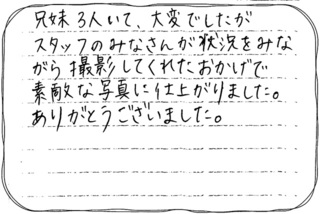 兄妹3人いて、大変でしたが
スタッフのみなさんが状況をみな
がら撮影してくれたおかげで
素敵な写真に仕上がりました。
ありがとうございました。